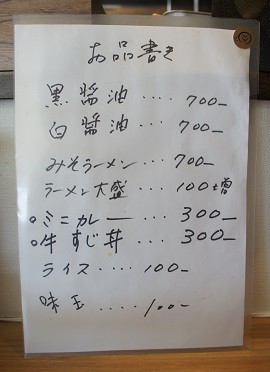 お品書き
黒醤油‥‥700-
白醤油‥‥700-
みそラーメン‥‥700-
ラーメン大盛‥‥100増
○ミニカレー‥‥300-
○牛すじ丼‥‥300-
ライス‥‥100-
味玉‥‥100-